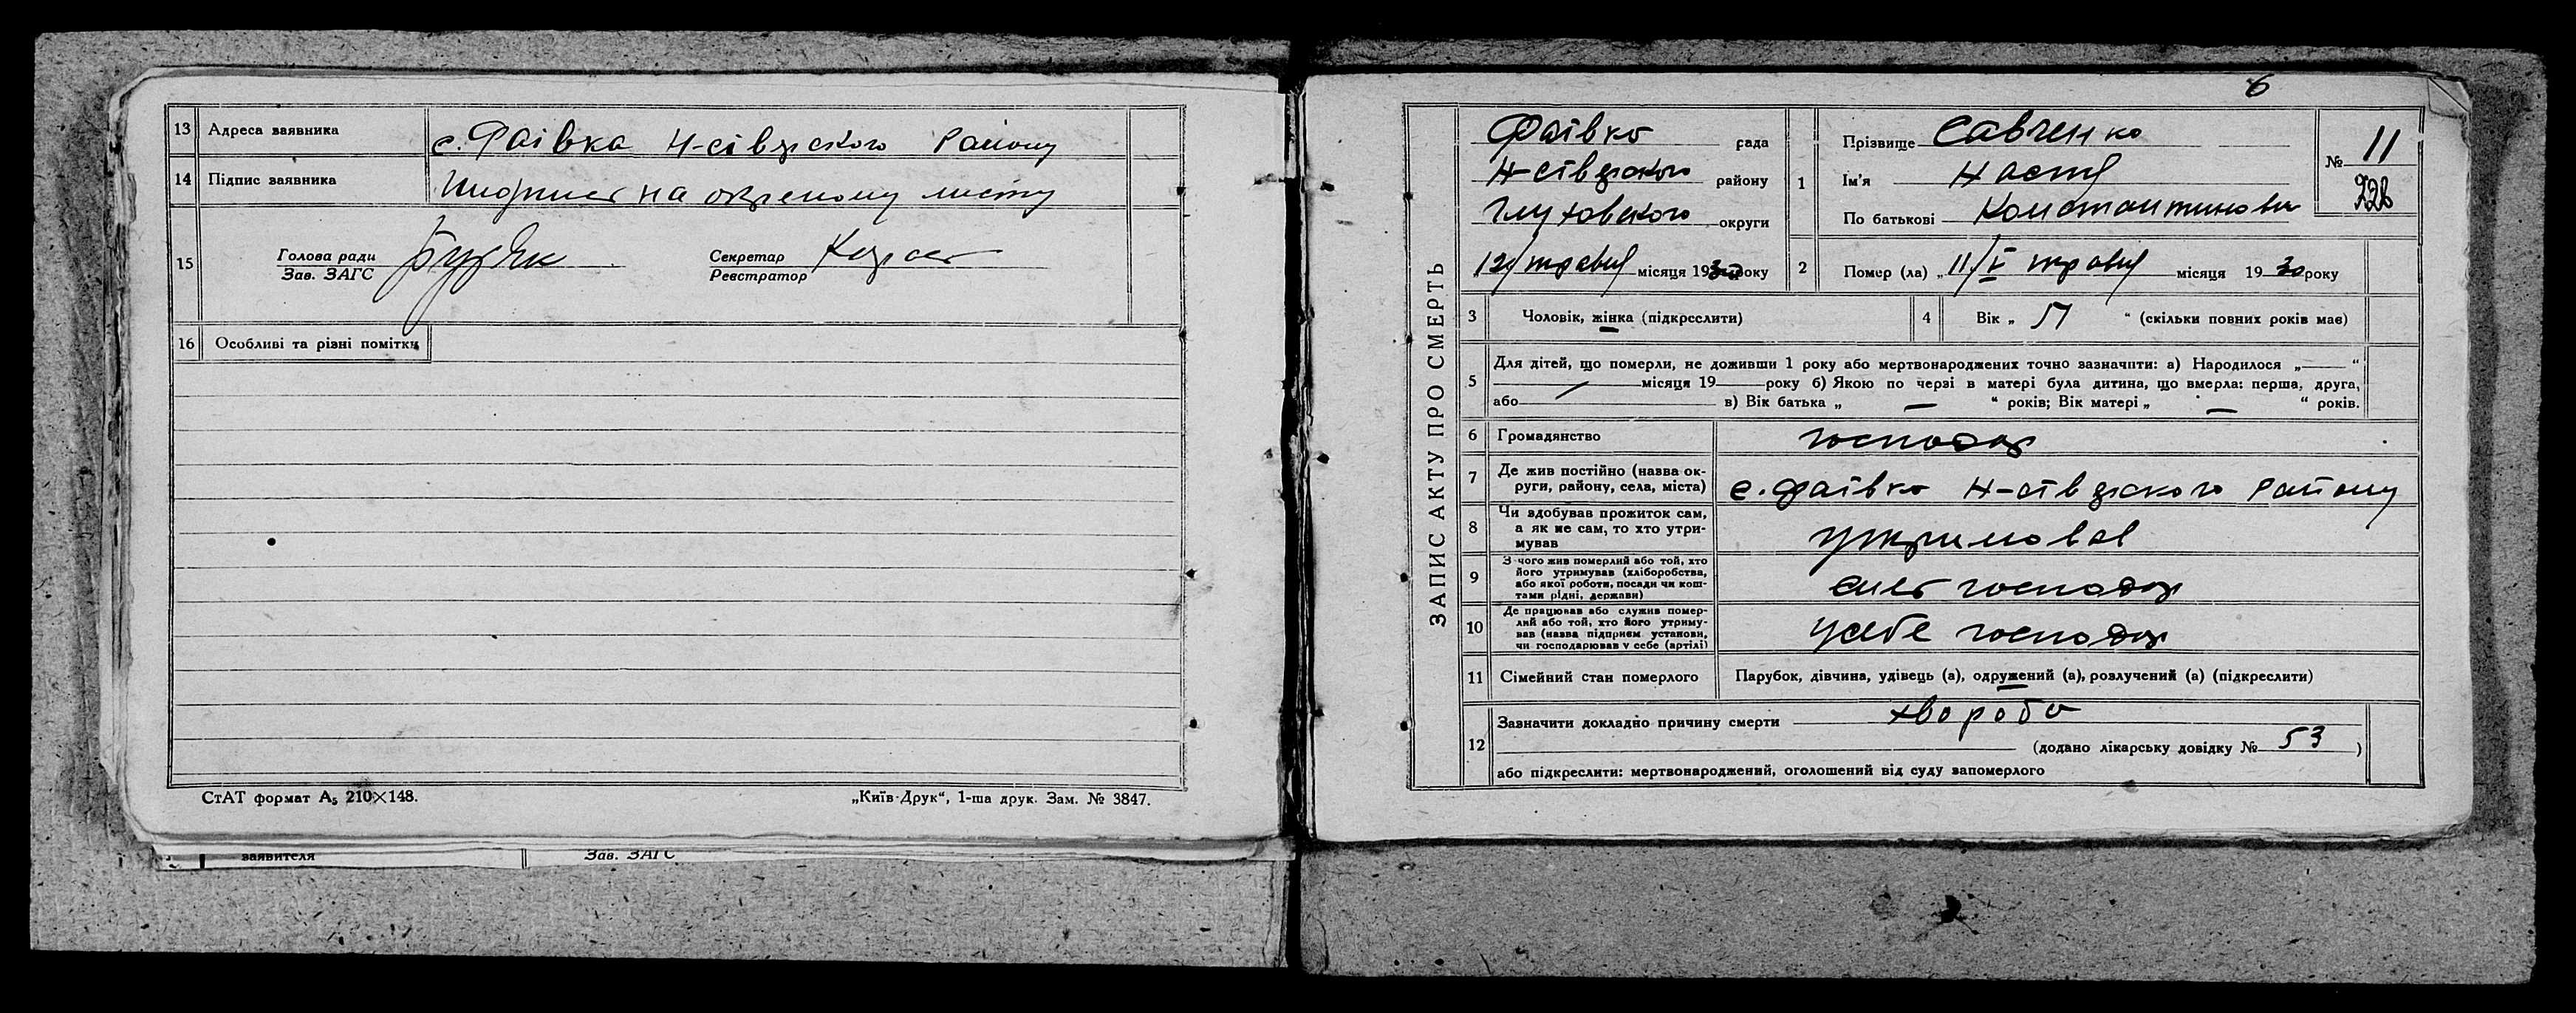 13 Адреса заявника с. Фаівка Н-сіверского Району
14 Підпис заявника на окремому листу
15 Голова ради
Зав. ЗАГС
Секретар
Реєстратор
16 Особливі та різні помітки
СтАТ формат А5 210×148.
„Київ-Друк“, 1-ша друк. Зам. № 3847.
заявителя
Зав. ЗАГС
6
ЗАПИС АКТУ ПРО СМЕРТЬ
Фаівка рада
Н-сіверского району
Глуховского округи
12/травня місяця 1930 року
1 Прізвище Савченко
Ім'я Настя
По батькові Константинова
№ 11
2 Помер (ла) „11/V травня місяця 1930 року
3 Чоловік, жінка (підкреслити)
4 Вік „ 51 “ (скільки повних років має)
5 Для дітей, що померли, не доживши 1 року або мертвонароджених точно зазначити: а) Народилося „ — “
місяця 19 року б) Якою по черзі в матері була дитина, що вмерла: перша, друга,
або в) Вік батька „ — “ років; Вік матері „ — “ років.
6 Громадянство господар
7 Де жив постійно (назва ок-
руги, району, села, міста) с. Фаівка Н-сіверского Району
8 Чи здобував прожиток сам,
а як не сам, то хто утри-
мував
9 З чого жив померлий або той, хто
його утримував (хліборобства,
або якої роботи, посади чи кош-
тами рідні, держави) господар
10 Де працював або служив помер-
лий або той, хто його утриму-
вав (назва підприєм. установи,
чи господарював у себе (артілі) усебе господар
11 Сімейний стан померлого Парубок, дівчина, удівець (а), одружений (а), розлучений (а) (підкреслити)
12 Зазначити докладно причину смерти хвороба
(додано лікарську довідку № 53 )
або підкреслити: мертвонароджений, оголошений від суду запомерлого